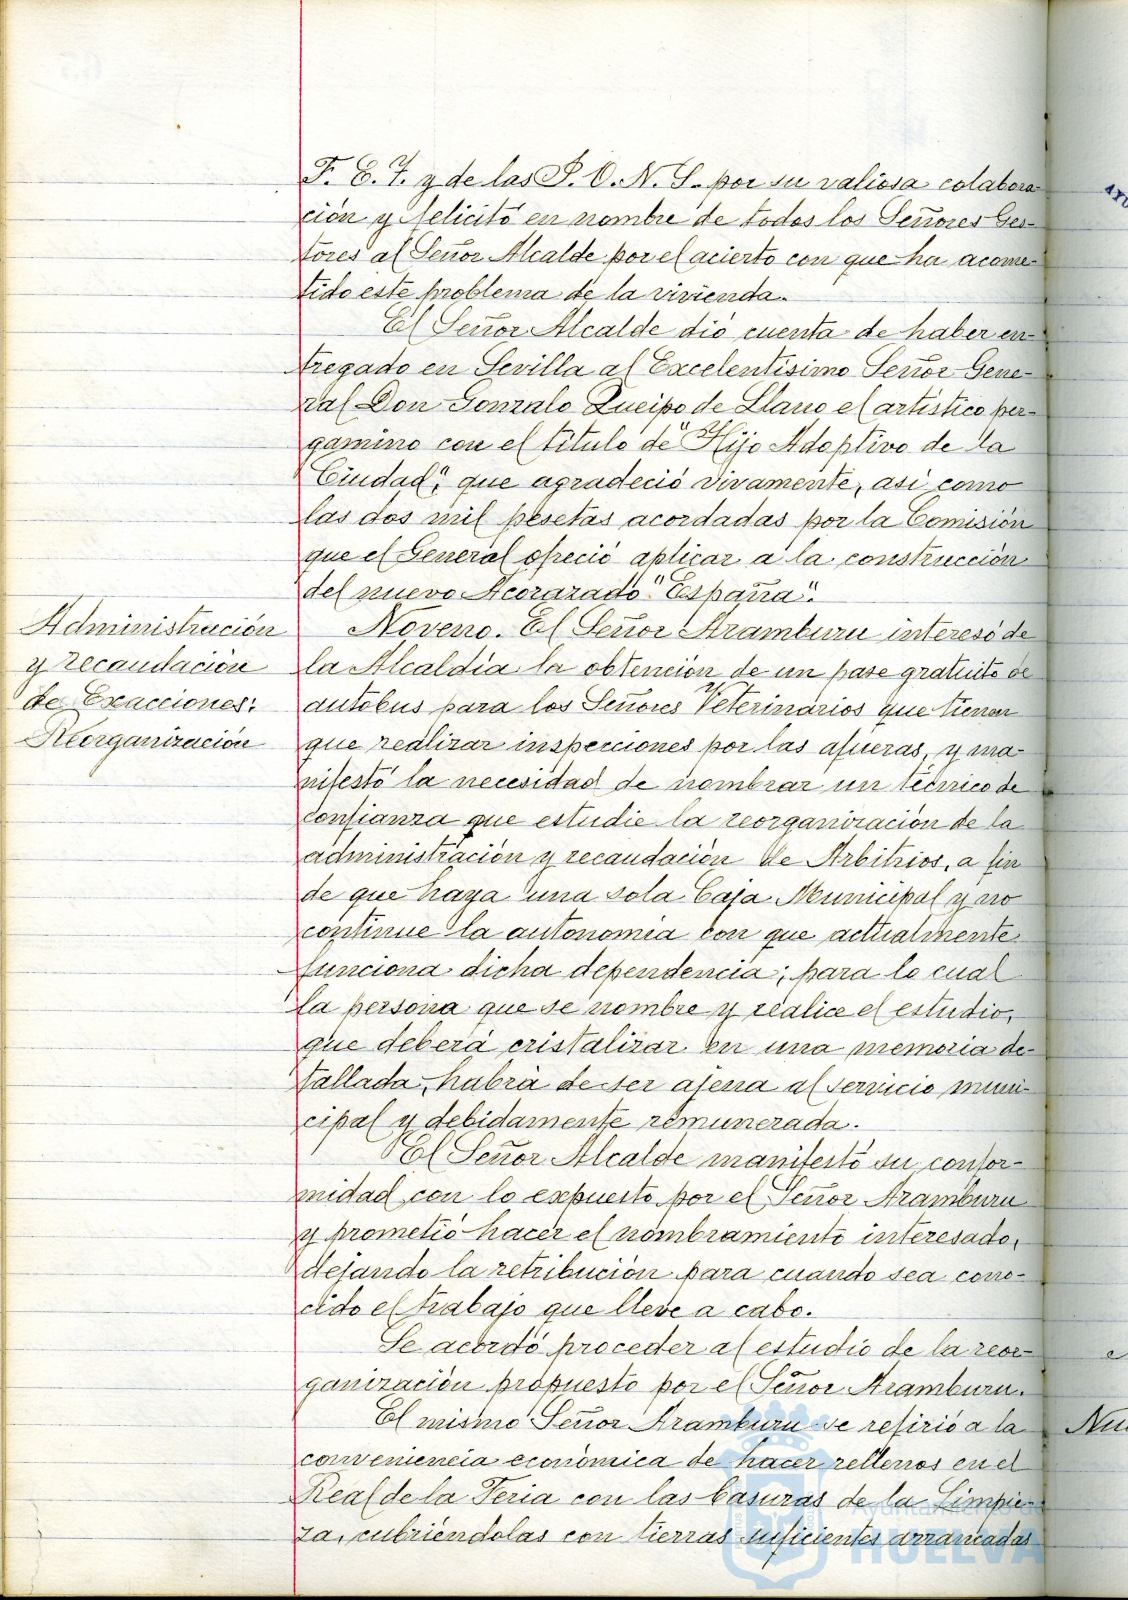 F. E. T. y de las J. O. N. S. por su valiosa colabora-
ción y felicitó en nombre de todos los Señores Ges-
tores al Señor Alcalde por el acierto con que ha acome-
tido este problema de la vivienda.
El Señor Alcalde dió cuenta de haber en-
tregado en Sevilla al Excelentísimo Señor Gene-
ral Don Gonzalo Queipo de Llano el artístico per-
gamino con el título de "Hijo Adoptivo de la
Ciudad", que agradeció vivamente, así como
las dos mil pesetas acordadas por la Comisión
que el General ofreció aplicar a la construcción
del nuevo Acorazado "España".
Administración
y recaudación
de Exacciones:
Reorganización
Noveno. El Señor Aramburu interesó de
la Alcaldía la obtención de un pase gratuito de
autobus para los Señores Veterinarios que tienen
que realizar inspecciones por las afueras, y ma-
nifestó la necesidad de nombrar un técnico de
confianza que estudie la reorganización de la
administración y recaudación de Arbitrios, a fin
de que haya una sola Caja Municipal y no
continue la autonomía con que actualmente
funciona dicha dependencia; para lo cual
la persona que se nombre y realice el estudio,
que deberá cristalizar en una memoria de-
tallada, habrá de ser ajena al servicio muni-
cipal y debidamente remunerada.
El Señor Alcalde manifestó su confor-
midad con lo expuesto por el Señor Aramburu
y prometió hacer el nombramiento interesado,
dejando la retribución para cuando sea cono-
cido el trabajo que lleve a cabo.
Se acordó proceder al estudio de la reor-
ganización propuesto por el Señor Aramburu.
El mismo Señor Aramburu se refirió a la
conveniencia económica de hacer rellenos en el
Real de la Feria con las basuras de la Limpie-
za, cubriéndolas con tierras suficientes arrancadas
Ayuntamiento de
HUELVA